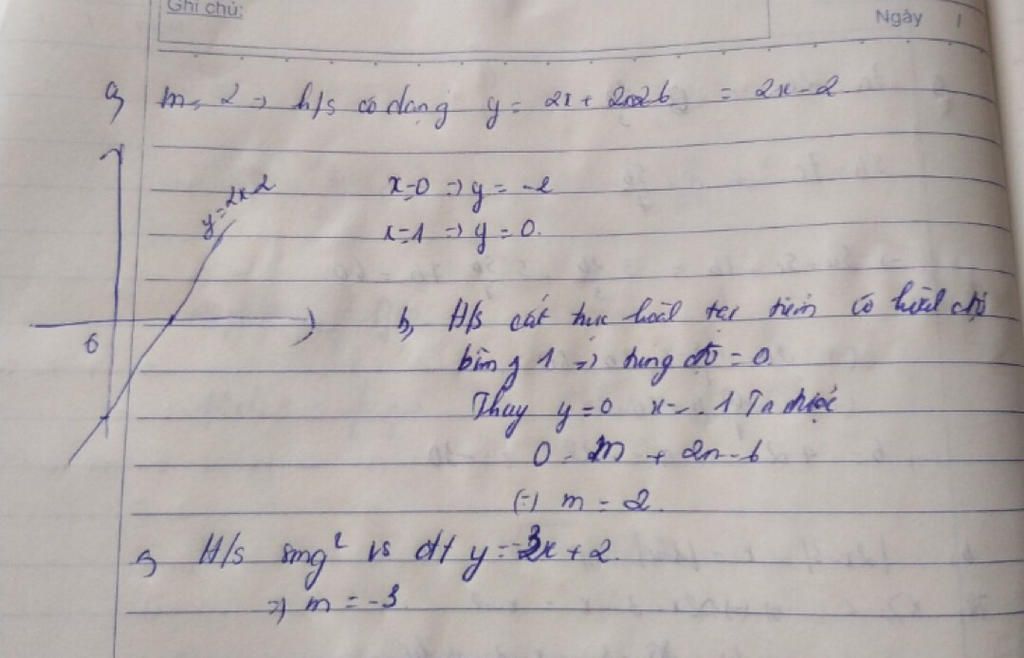 Ghi chú:
Ngày
a, m = 2 => h/s có dạng y = 2x + 2.2-6 = 2x - 2
y = 2x-2
x=0 => y = -2
x=1 => y = 0.
b, H/s cắt trục hoành tại điểm có hoành độ
bằng 1 => tung độ = 0.
Thay y=0 x= 1 Ta được
0 = m + 2m - 6
(=) m = 2.
c, H/s song² vs đt y = -3x + 2.
=> m = -3